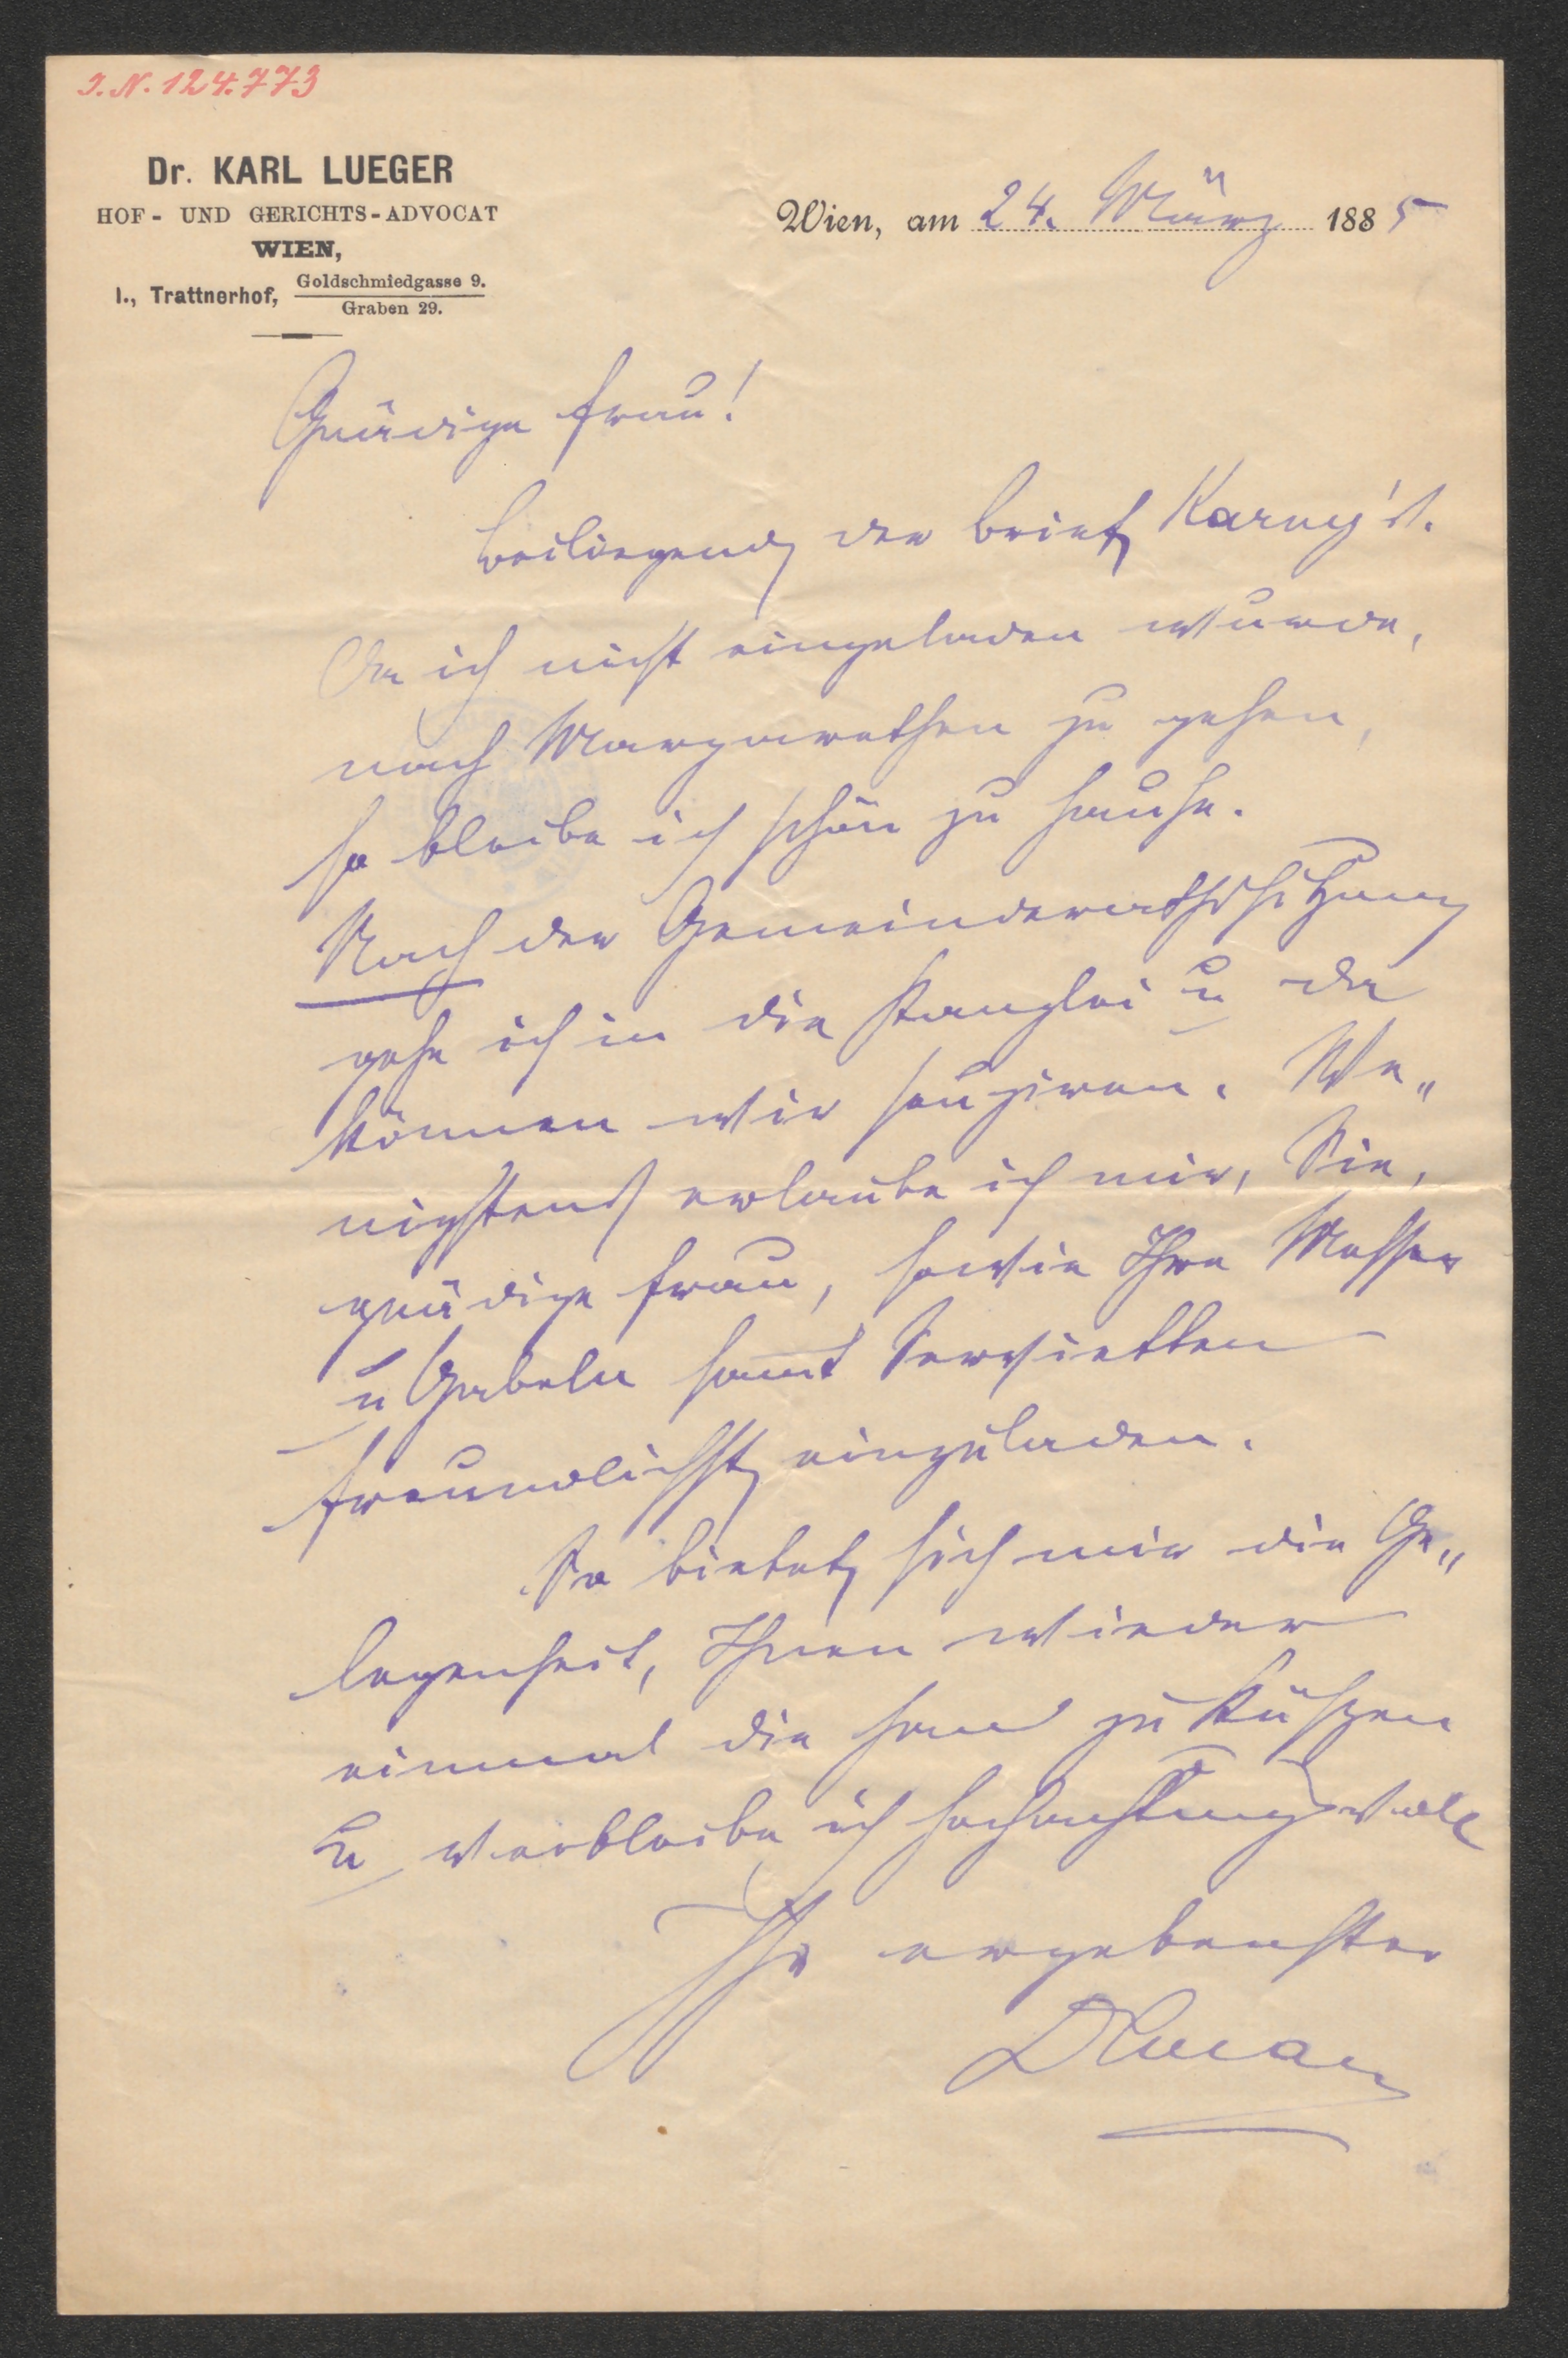 I. N. 124.773
Dr. KARL LUEGER
HOF- UND GERICHTS-ADVOCAT
WIEN,
I., Trattnerhof, Goldschmiedgasse 9.
Graben 29.
Wien, am 24. März 1885
Gnädige Frau!
Beiliegend der Brief Karny's.
Da ich nicht eingeladen wurde,
nach Margarethen zu gehen,
so bleibe ich schön zu Hause.
Nach der Gemeinderathssitzung
gehe ich in die Kanzlei u da
können wir soupiren. We„
nigstens erlaube ich mir, Sie,
gnädige Frau, sowie Ihre Messer
u Gabeln sammt Servietten
freundlichst einzuladen.
So bietet sich mir die Ge„
legenheit, Ihnen wieder
einmal die Hand zu küssen
u verbleibe ich hochachtungsvoll
Ihr ergebenster